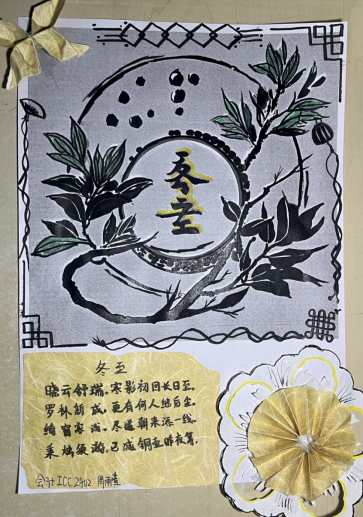 冬至
冬至
晓云舒瑞,寒影初回长日至。
罗袜新成,更有何人继后尘。
绮窗寒浅,尽道朝来添一线。
秉烛须游,已减铜壶昨夜筹。
会计ICC2402 周雨萱